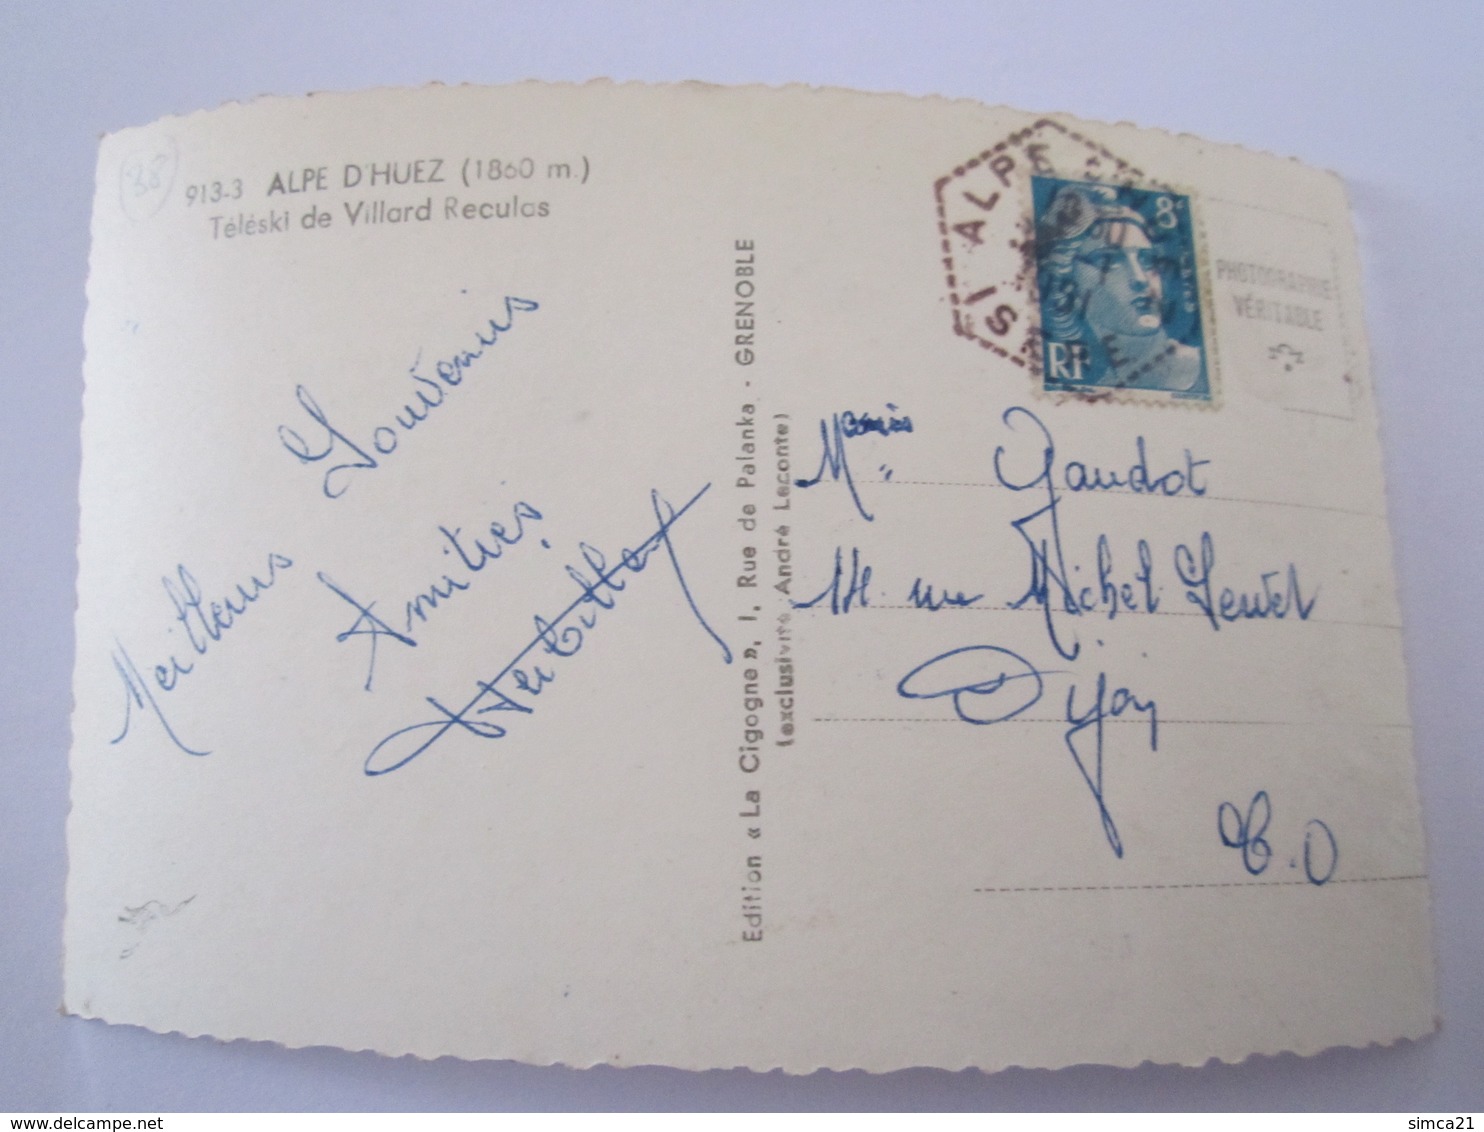 (88)
913-3 ALPE D'HUEZ (1860 m.)
Téléski de Villard Reculas
Meilleurs Souvenirs
Amitiés
Edition « La Cigogne », 1, Rue de Palanka - GRENOBLE
(exclusivité André Leconte)
ALPE
ISERE
8F
RF
PHOTOGRAPHIE
VÉRITABLE
Gaudot
rue Michel Servet
Dijon
C.O
delcampe.net
simca21